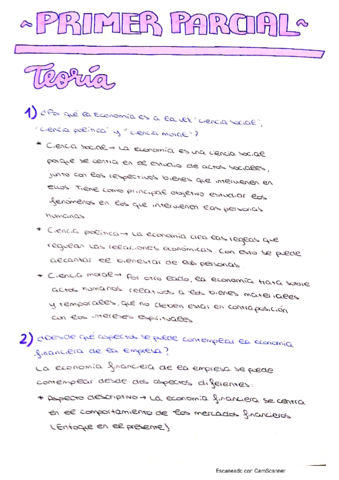 ~PRIMER PARCIAL~
Teoría
1) ¿Por qué la Economía es a la vez "ciencia social",
"ciencia política" y "ciencia moral"?
* Ciencia social → La economía es una ciencia social
porque se centra en el estudio de actos sociales,
junto con los respectivos bienes que intervienen en
ellos. Tiene como principal objetivo estudiar los
fenómenos en los que intervienen las personas
humanas
* Ciencia política → La economía crea las reglas que
regulan las relaciones económicas. Con esto se puede
alcanzar el bienestar de las personas
* Ciencia moral → Por otro lado, la economía trata sobre
actos humanos relativos a los bienes materiales
y temporales, que no deben estar en contraposición
con los intereses espirituales
2) ¿Desde qué aspectos se puede contemplar la economía
financiera de la empresa?
La economía financiera de la empresa se puede
contemplar desde dos aspectos diferentes:
* Aspecto descriptivo → La economía financiera se centra
en el comportamiento de los mercados financieros
(Enfoque en el presente)
Escaneado con CamScanner